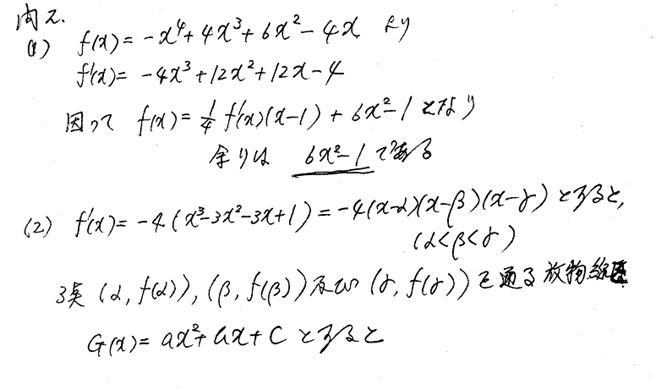 問2.
(1) f(x) = -x⁴+4x³+6x²-4x より
f'(x) = -4x³+12x²+12x-4
因って f(x) = 1/4 f'(x)(x-1) + 6x²-1 となり
余りは 6x²-1 である
(2) f'(x) = -4(x³-3x²-3x+1) = -4(x-α)(x-β)(x-γ) とすると,
(α<β<γ)
3点 (α, f(α)), (β, f(β)) 及び (γ, f(γ)) を通る放物線
G(x) = ax²+bx+c とすると